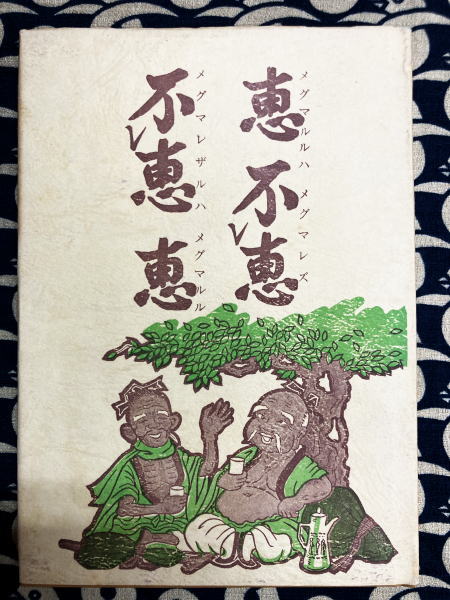 恵不レ恵
メグマルルハ メグマレズ
不レ恵恵
メグマレザルハ メグマルル